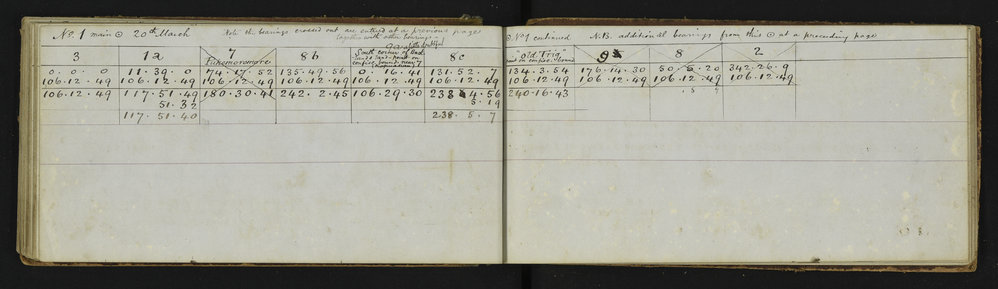 No. 1 main ⊙ 20th March Note the bearings crossed out are entered at a previous page
together with other bearings
3 1a 7 8b 8c
Pukemoremore
South corner of Back
0 . 0 . 0 11 . 39 . 0 74 . 17 . 52 135 . 49 . 56 0 . 16 . 41 131 . 52 . 7
106 . 12 . 49 106 . 12 . 49 106 . 12 . 49 106 . 12 . 49 106 . 12 . 49 106 . 12 . 49
106 . 12 . 49 117 . 51 . 49 180 . 30 . 41 242 . 2 . 45 106 . 29 . 30 238 4 . 56
51 . 32 5 . 19
117 . 51 . 40 238 . 5 . 7
⊙ No. 1 continued N.B. additional bearings from this ⊙ at a preceding page
"Old Trig" 9a 8 2
134 . 3 . 54 176 . 14 . 30 50 . 5 . 20 342 . 26 . 9
106 . 12 . 49 106 . 12 . 49 106 . 12 . 49 106 . 12 . 49
240 . 16 . 43